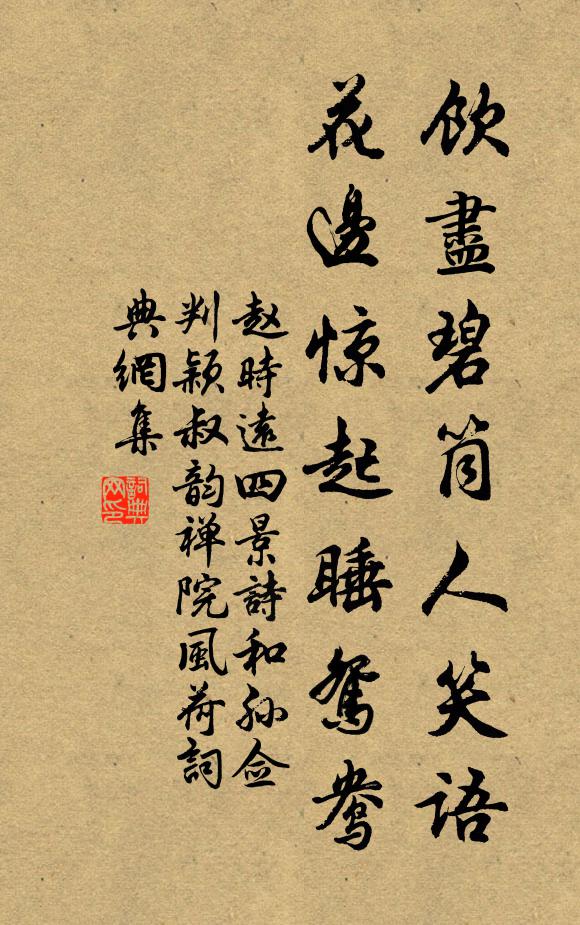 飲盡碧筒人笑語
花邊惊起睡鴛鴦
赵時遠四景詩和孙佥
判颖叔韵禅院風荷詞
典網集
詞典网印